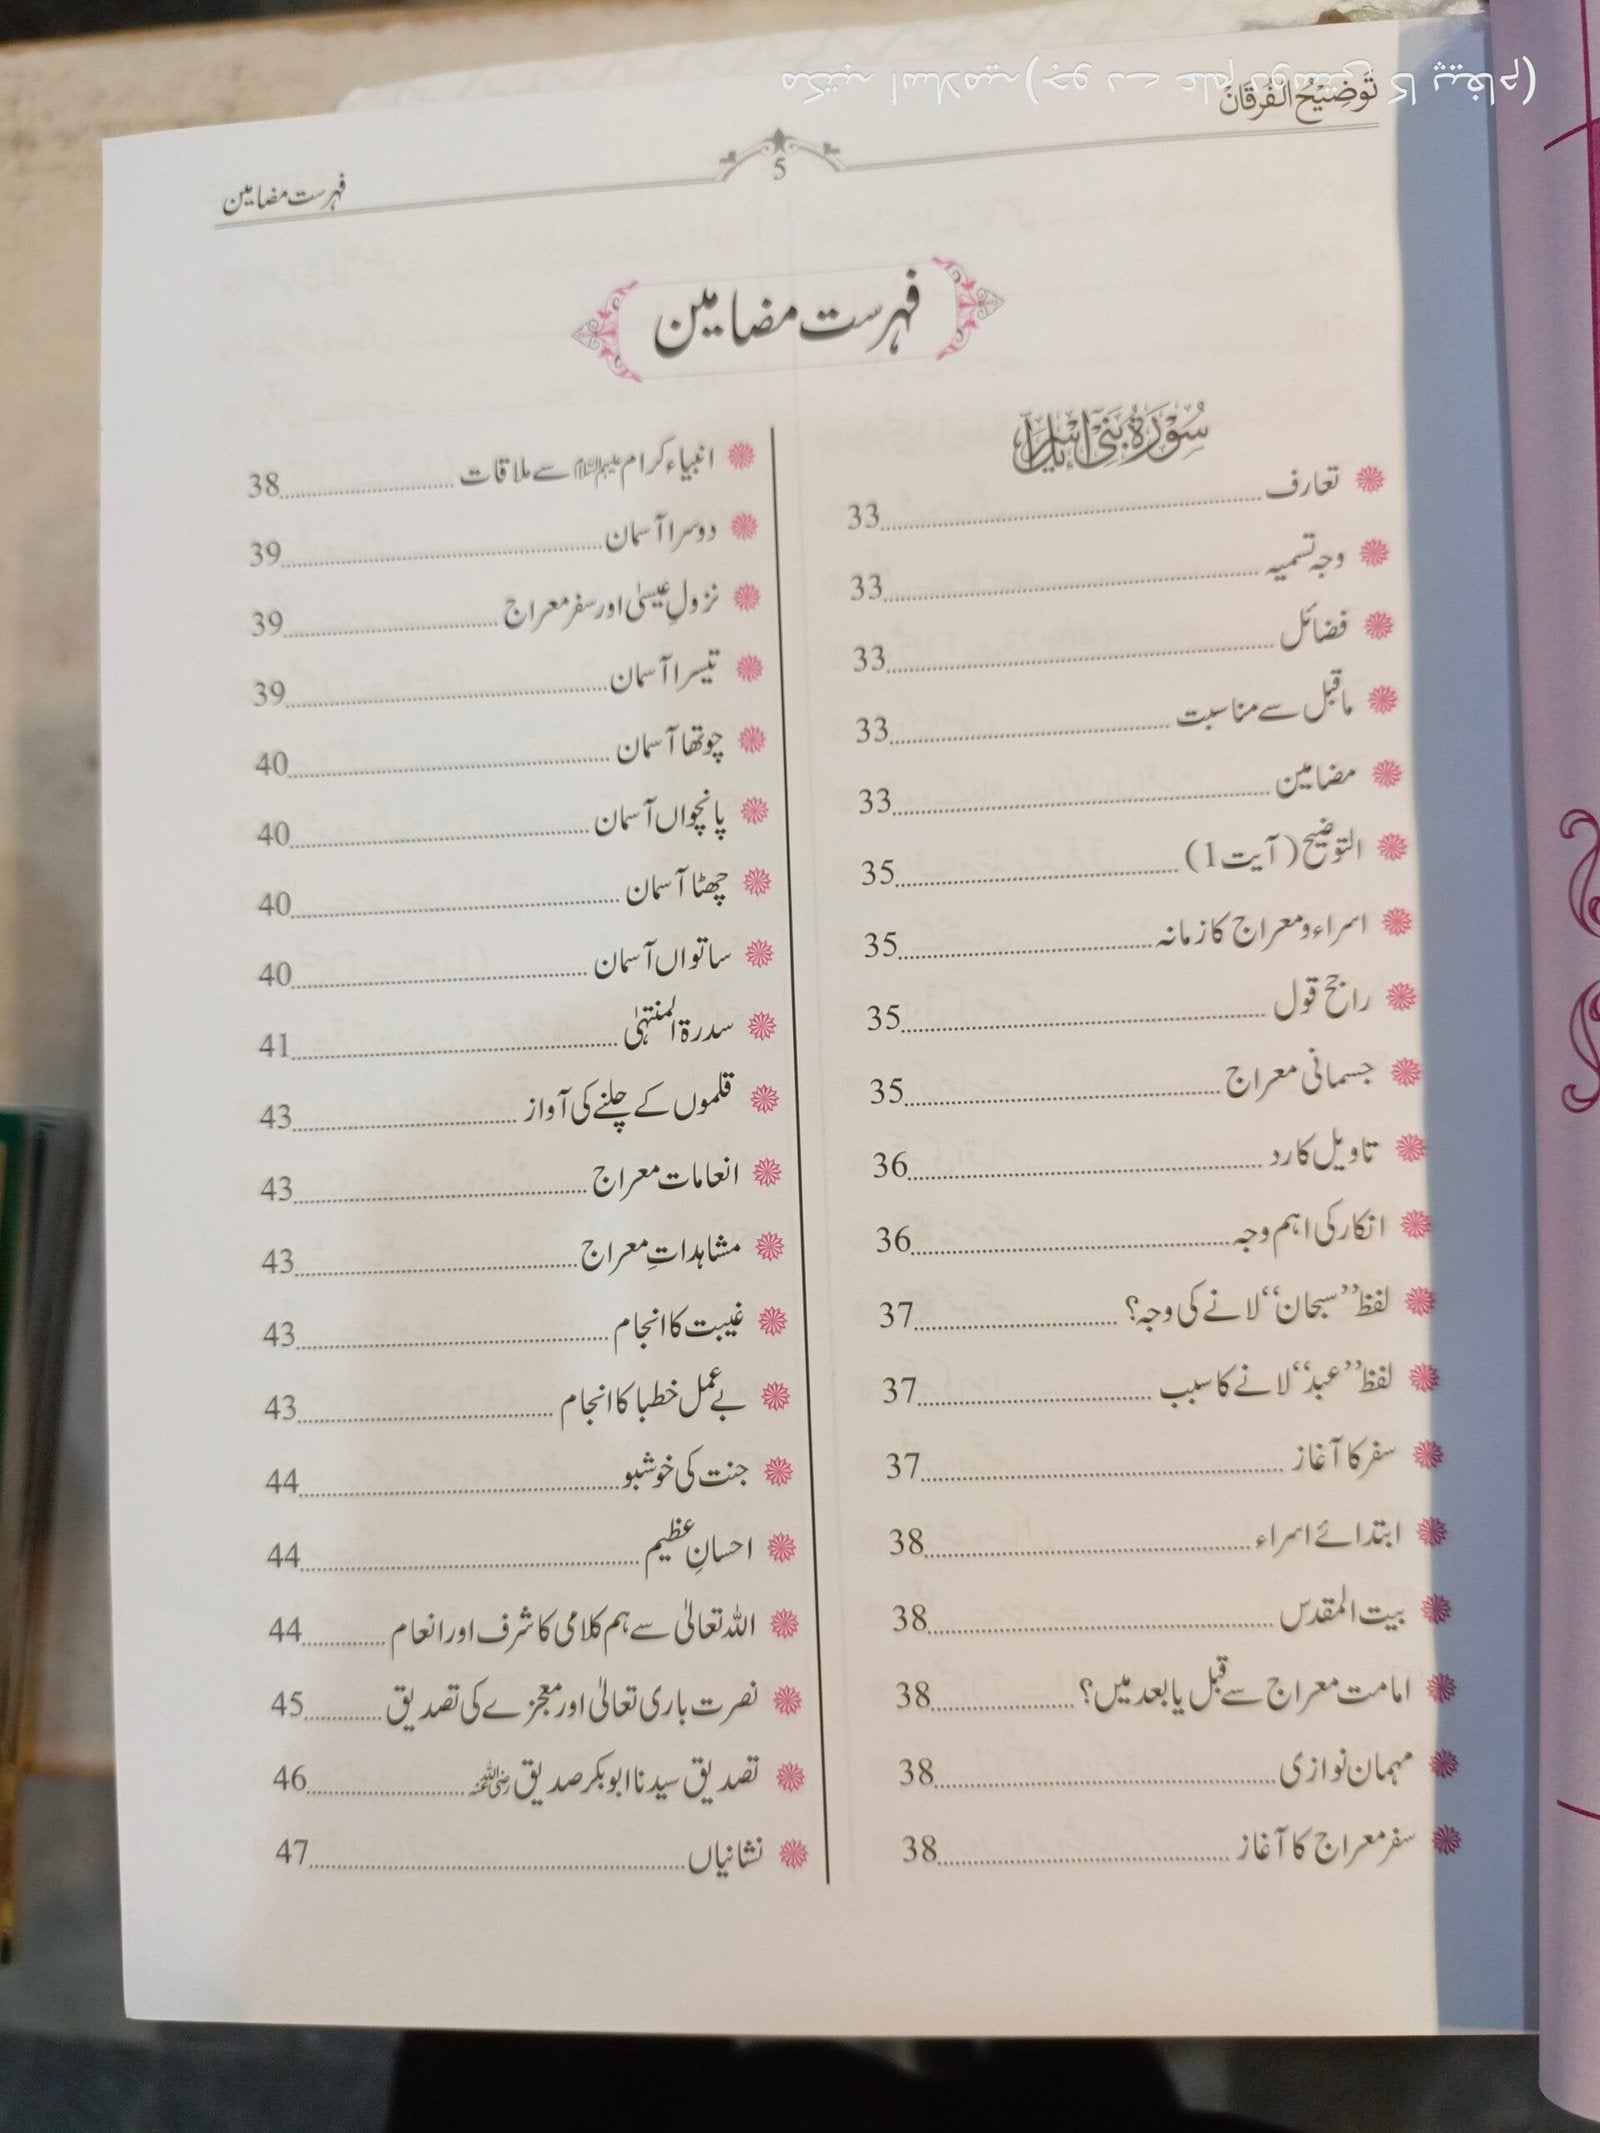 مکتبہ اسلامیہ (جو دے علم دوستی کا پیغام)
تَوضِیْحُ الفُرقَان
5
فہرست مضامین
فہرست مضامین
سُوْرَةُ بَنِیْ اِسْرَآءِیْل
تعارف 33
وجہ تسمیہ 33
فضائل 33
ماقبل سے مناسبت 33
مضامین 33
التوضیح (آیت 1) 35
اسراء و معراج کا زمانہ 35
راجح قول 35
جسمانی معراج 35
تاویل کا رد 36
انکار کی اہم وجہ 36
لفظ ’’سبحان‘‘ لانے کی وجہ؟ 37
لفظ ’’عبد‘‘ لانے کا سبب 37
سفر کا آغاز 37
ابتدائے اسراء 38
بیت المقدس 38
امامت معراج سے قبل یا بعد میں؟ 38
مہمان نوازی 38
سفر معراج کا آغاز 38
انبیاء کرام علیہم السلام سے ملاقات 38
دوسرا آسمان 39
نزولِ عیسیٰ اور سفر معراج 39
تیسرا آسمان 39
چوتھا آسمان 40
پانچواں آسمان 40
چھٹا آسمان 40
ساتواں آسمان 40
سدرۃ المنتہیٰ 41
قلموں کے چلنے کی آواز 43
انعامات معراج 43
مشاہداتِ معراج 43
غیبت کا انجام 43
بے عمل خطبا کا انجام 43
جنت کی خوشبو 44
احسانِ عظیم 44
اللہ تعالیٰ سے ہم کلامی کا شرف اور انعام 44
نصرت باری تعالیٰ اور معجزے کی تصدیق 45
تصدیق سیدنا ابوبکر صدیق رضی اللہ عنہ 46
نشانیاں 47